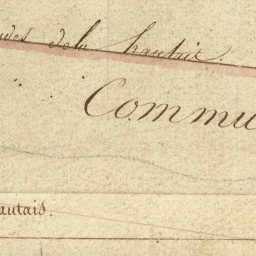 udes de la hautais.
Commu
autais.